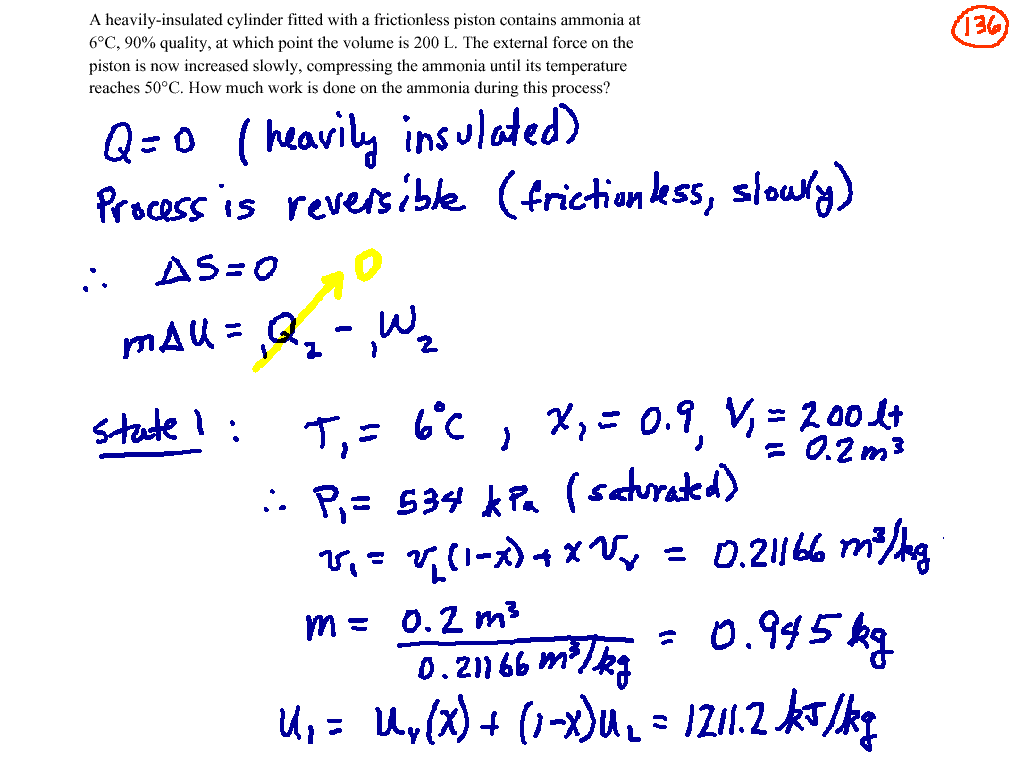 A heavily-insulated cylinder fitted with a frictionless piston contains ammonia at
6°C, 90% quality, at which point the volume is 200 L. The external force on the
piston is now increased slowly, compressing the ammonia until its temperature
reaches 50°C. How much work is done on the ammonia during this process?
136
Q = 0 (heavily insulated)
Process is reversible (frictionless, slowly)
∴ ΔS = 0
0
mΔU = ₁Q₂ - ₁W₂
state 1 : T₁ = 6°C , x₁ = 0.9, V₁ = 200 lt
= 0.2 m³
∴ P₁ = 534 kPa (saturated)
v₁ = v_L(1-x) + x v_v = 0.21166 m³/kg
m = 0.2 m³ / 0.21166 m³/kg = 0.945 kg
u₁ = u_v(x) + (1-x)u_L = 1211.2 kJ/kg